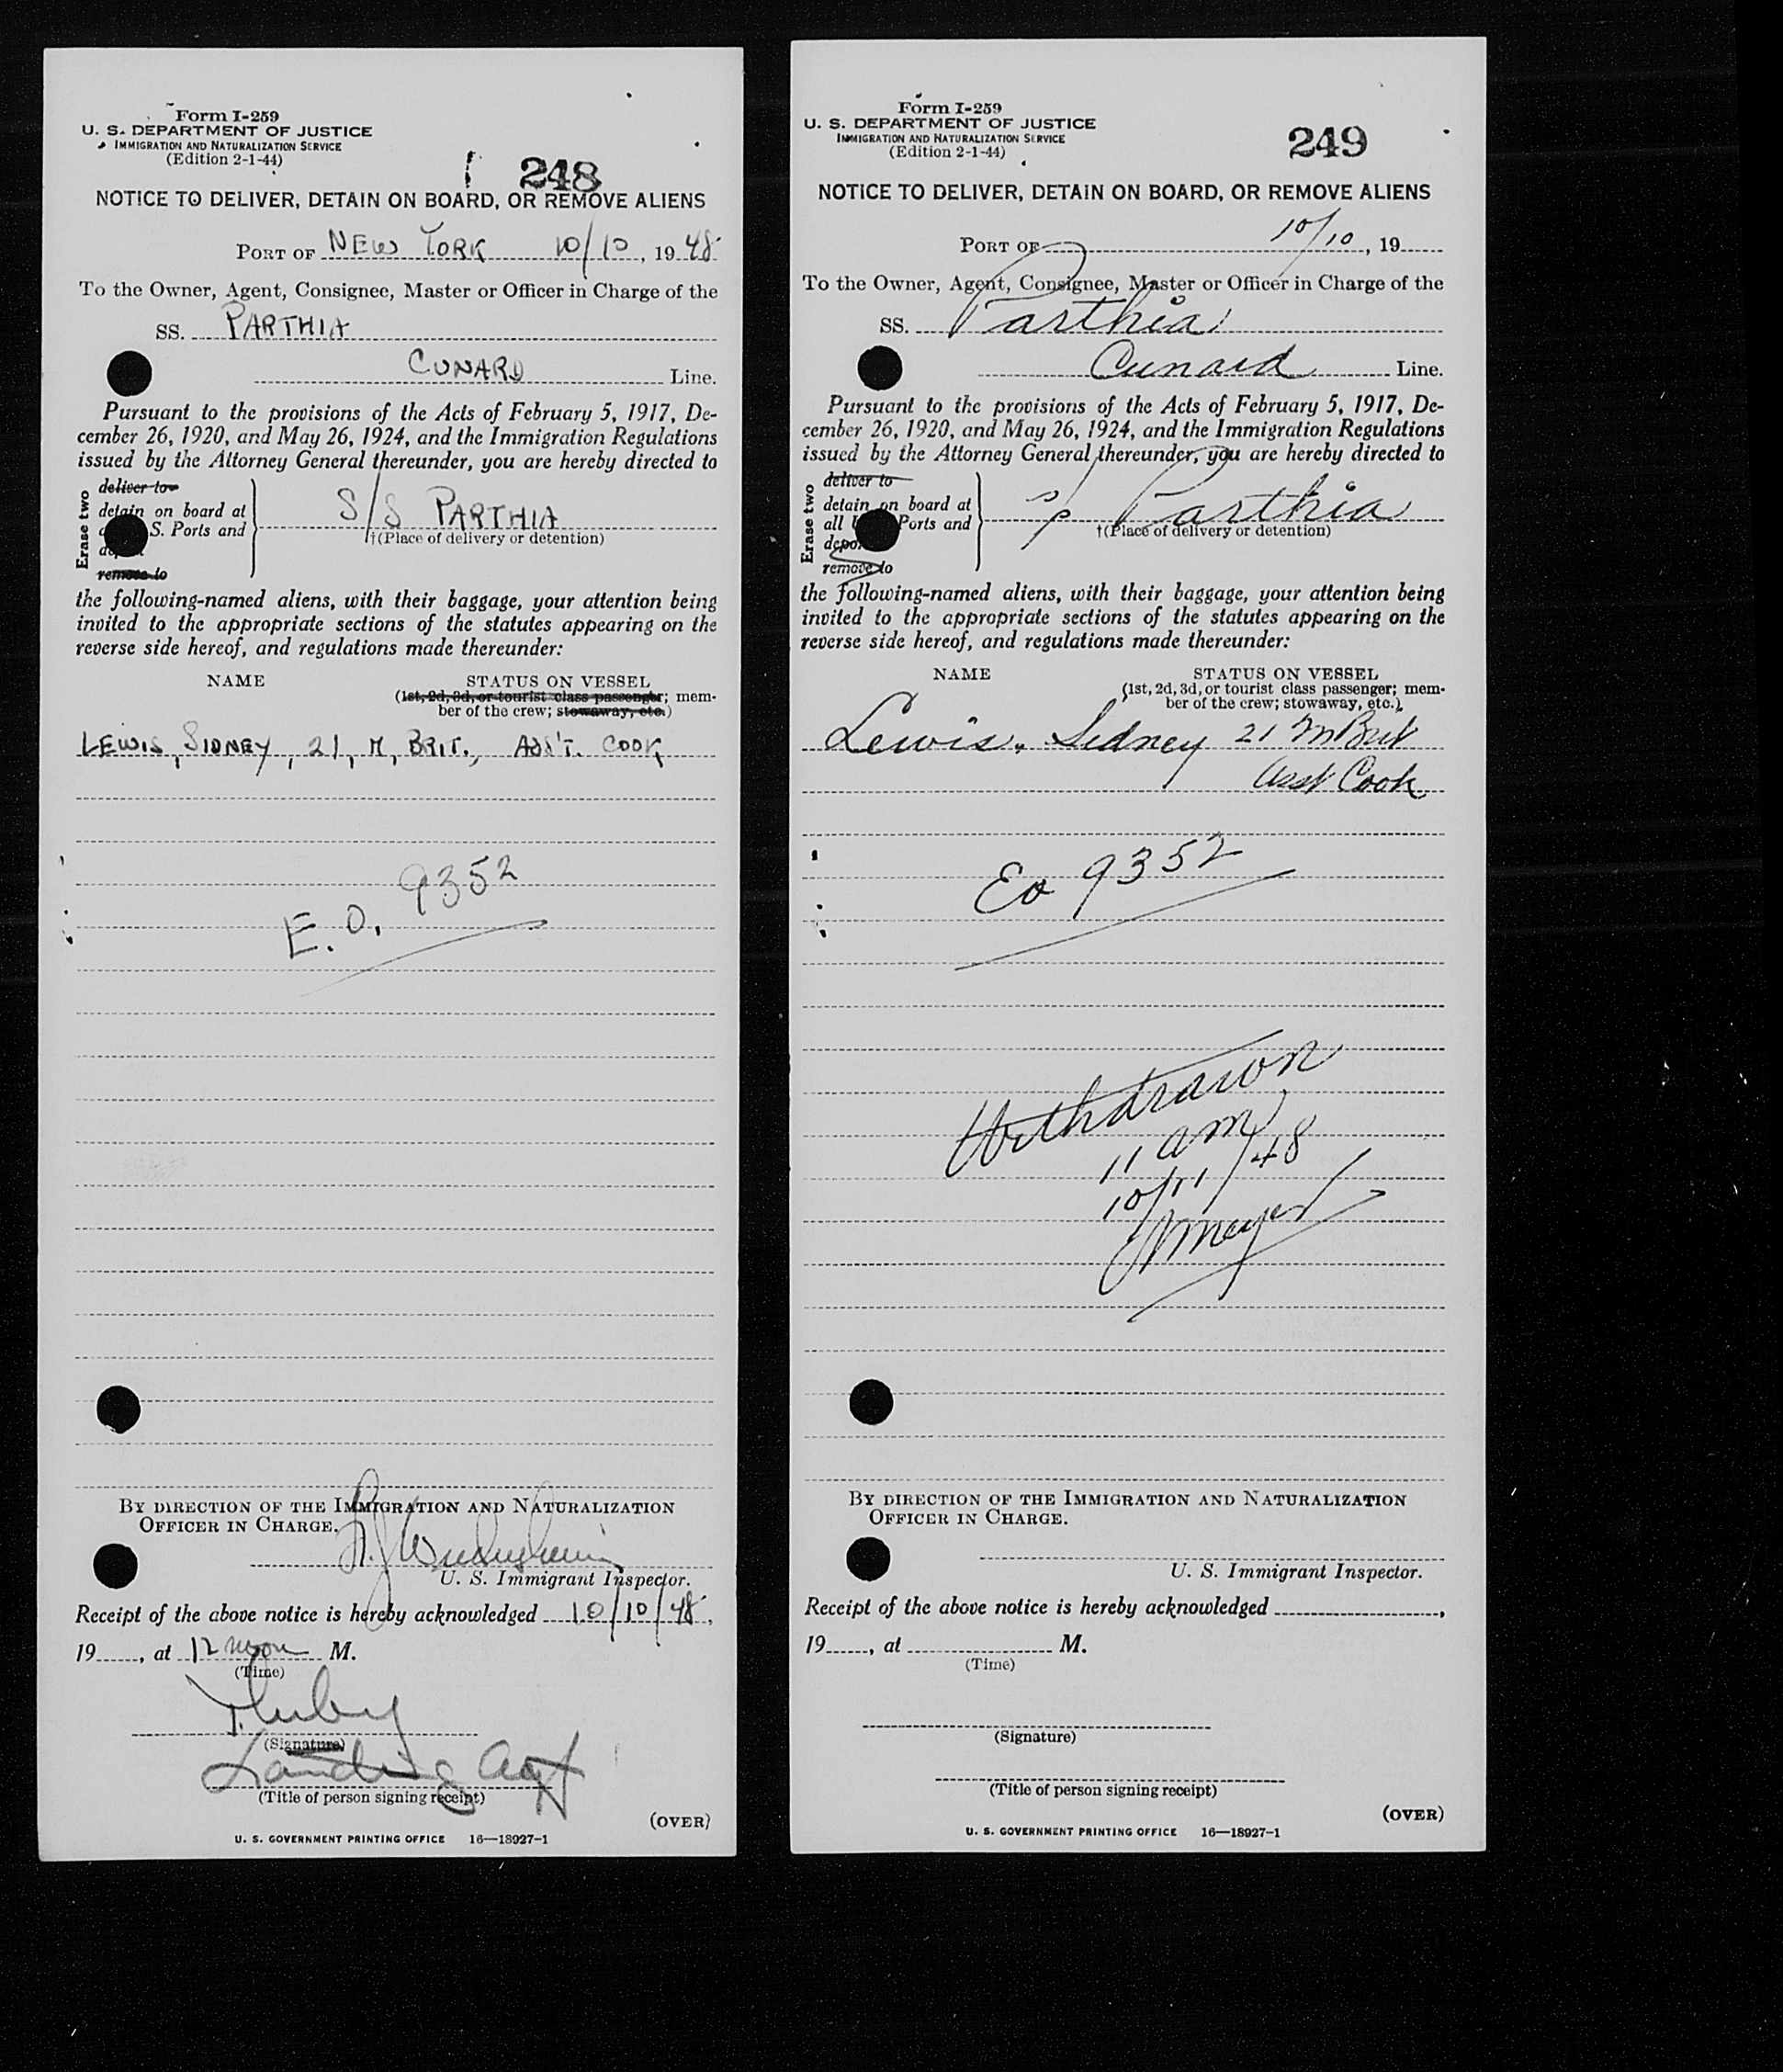 Form I-259
U. S. DEPARTMENT OF JUSTICE
IMMIGRATION AND NATURALIZATION SERVICE
(Edition 2-1-44)
248
NOTICE TO DELIVER, DETAIN ON BOARD, OR REMOVE ALIENS
PORT OF NEW YORK 10/10, 1948
To the Owner, Agent, Consignee, Master or Officer in Charge of the
SS. PARTHIA
CUNARD Line.
Pursuant to the provisions of the Acts of February 5, 1917, De-
cember 26, 1920, and May 26, 1924, and the Immigration Regulations
issued by the Attorney General thereunder, you are hereby directed to
Erase two
deliver to
detain on board at
S. Ports and
remove to
S/S PARTHIA
†(Place of delivery or detention)
the following-named aliens, with their baggage, your attention being
invited to the appropriate sections of the statutes appearing on the
reverse side hereof, and regulations made thereunder:
NAME STATUS ON VESSEL
(1st, 2d, 3d, or tourist class passenger; mem-
ber of the crew; stowaway, etc.)
LEWIS, SIDNEY, 21, M, BRIT., ASS'T. COOK
E.O. 9352
BY DIRECTION OF THE IMMIGRATION AND NATURALIZATION
OFFICER IN CHARGE.
U. S. Immigrant Inspector.
Receipt of the above notice is hereby acknowledged 10/10/48,
19, at 12 noon M.
(Time)
(Signature)
Landing Agt
(Title of person signing receipt)
(OVER)
U. S. GOVERNMENT PRINTING OFFICE 16—18927-1
Form I-259
U. S. DEPARTMENT OF JUSTICE
IMMIGRATION AND NATURALIZATION SERVICE
(Edition 2-1-44)
249
NOTICE TO DELIVER, DETAIN ON BOARD, OR REMOVE ALIENS
PORT OF 10/10, 19
To the Owner, Agent, Consignee, Master or Officer in Charge of the
SS. Parthia
Cunard Line.
Pursuant to the provisions of the Acts of February 5, 1917, De-
cember 26, 1920, and May 26, 1924, and the Immigration Regulations
issued by the Attorney General thereunder, you are hereby directed to
Erase two
deliver to
detain on board at
all Ports and
remove to
Parthia
†(Place of delivery or detention)
the following-named aliens, with their baggage, your attention being
invited to the appropriate sections of the statutes appearing on the
reverse side hereof, and regulations made thereunder:
NAME STATUS ON VESSEL
(1st, 2d, 3d, or tourist class passenger; mem-
ber of the crew; stowaway, etc.)
Lewis, Sidney 21 M Brit
Asst Cook
Eo 9352
Withdrawn
11 am
10/11/48
BY DIRECTION OF THE IMMIGRATION AND NATURALIZATION
OFFICER IN CHARGE.
U. S. Immigrant Inspector.
Receipt of the above notice is hereby acknowledged ,
19, at M.
(Time)
(Signature)
(Title of person signing receipt)
(OVER)
U. S. GOVERNMENT PRINTING OFFICE 16—18927-1